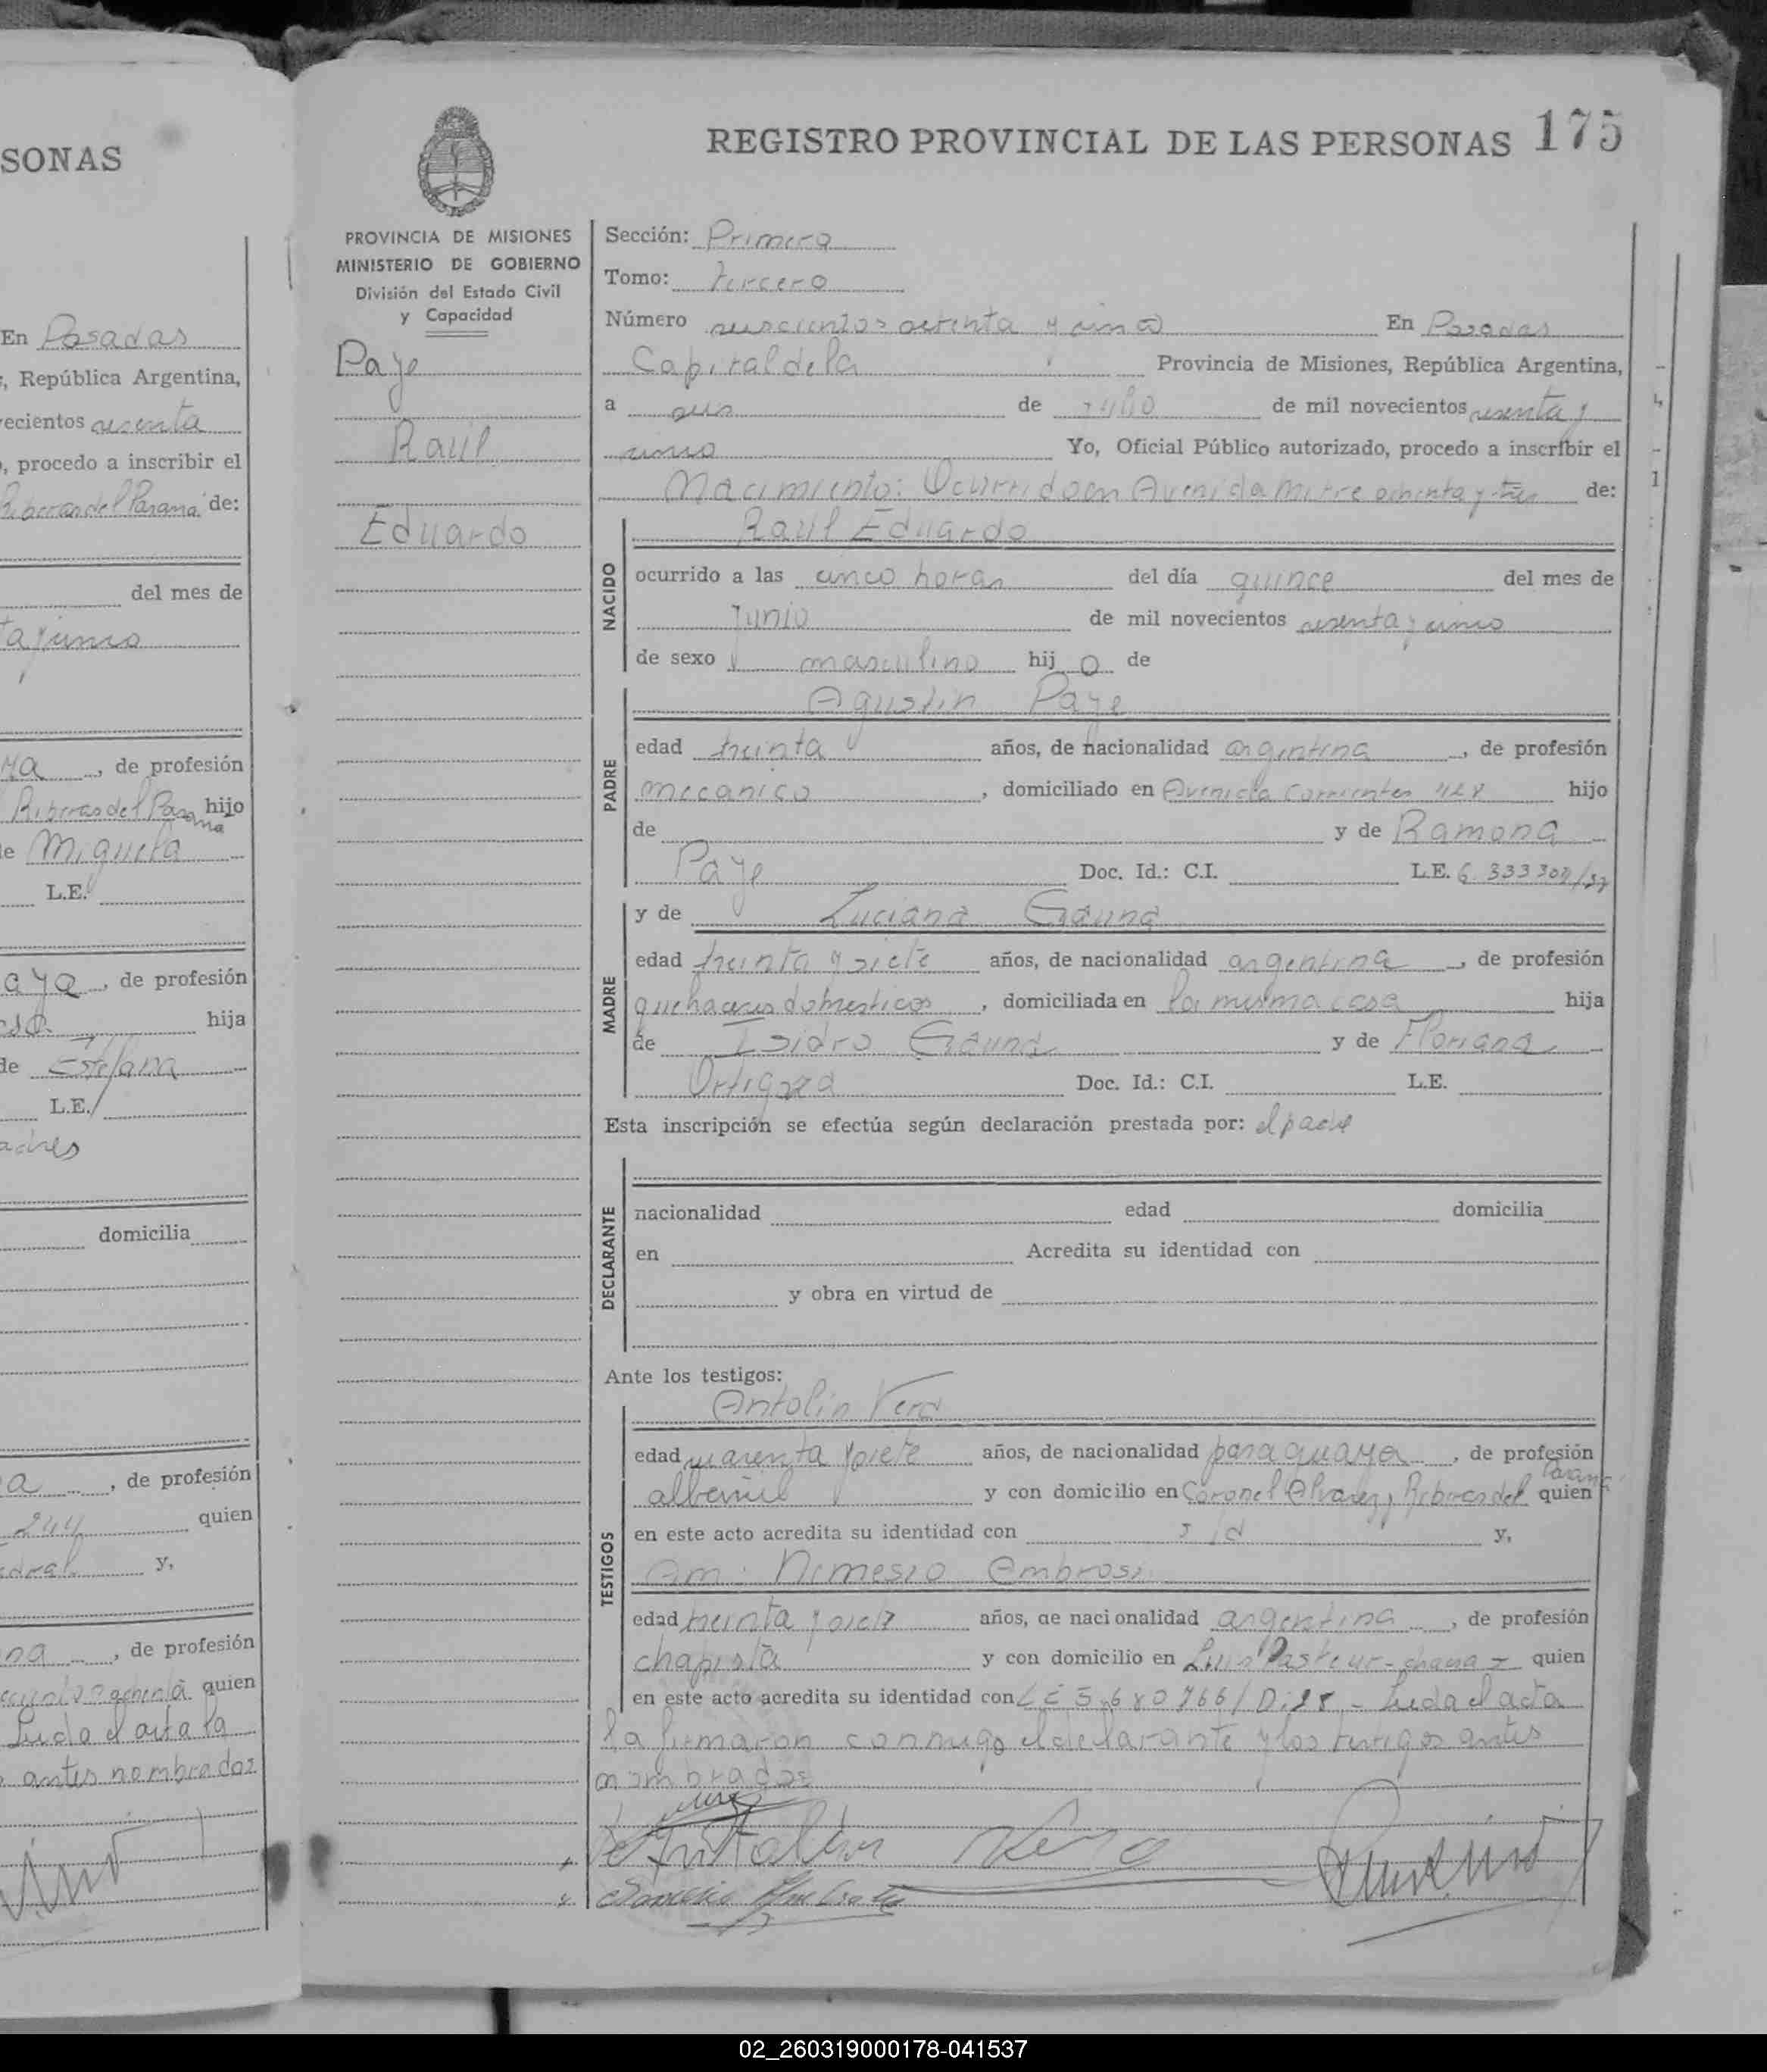 SONAS
En Posadas
, República Argentina,
ecientos sesenta
, procedo a inscribir el
Riberas del Paraná de:
del mes de
ta y cinco
ya, de profesión
Riberas del Paraná hijo
de Miguela
L.E.
aya, de profesión
hija
de Estefana
L.E.
adres
domicilia
a, de profesión
244 quien
y,
na, de profesión
quien
Leída el acta la
antes nombrados
REGISTRO PROVINCIAL DE LAS PERSONAS 175
PROVINCIA DE MISIONES
MINISTERIO DE GOBIERNO
División del Estado Civil
y Capacidad
Paye
Raúl
Eduardo
Sección: Primera
Tomo: tercero
Número seiscientos ochenta y En Posadas
Capital de la Provincia de Misiones, República Argentina,
a seis de julio de mil novecientos sesenta y
cinco Yo, Oficial Público autorizado, procedo a inscribir el
Nacimiento: Ocurrido en Avenida Mitre ochenta y tres de:
NACIDO
Raúl Eduardo
ocurrido a las cinco horas del día quince del mes de
Junio de mil novecientos sesenta y cinco
de sexo masculino hijo de
PADRE
Agustin Paye
edad treinta años, de nacionalidad argentina, de profesión
mecanico, domiciliado en Avenida Corrientes hijo
de y de Ramona
Paye Doc. Id.: C.I. L.E. 6.333
MADRE
y de Luciana Gauna
edad treinta y siete años, de nacionalidad argentina, de profesión
quehaceres domesticos, domiciliada en la misma casa hija
de Isidro Gauna y de Floriana
Ortigoza Doc. Id.: C.I. L.E.
Esta inscripción se efectúa según declaración prestada por: el padre
DECLARANTE
nacionalidad edad domicilia
en Acredita su identidad con
y obra en virtud de
Ante los testigos:
TESTIGOS
Antolin Vera
edad cuarenta y siete años, de nacionalidad paraguaya, de profesión
albañil y con domicilio en Coronel Alvarez y Riberas del Paraná quien
en este acto acredita su identidad con y,
Nemesio Ambrosi
edad treinta y siete años, de nacionalidad argentina, de profesión
chapista y con domicilio en Luis Pasteur - chacra quien
en este acto acredita su identidad con L E 5.680766 / Leída el acta
la firmaron conmigo el declarante y los testigos antes
nombrados
Antolin Vera
02_260319000178-041537